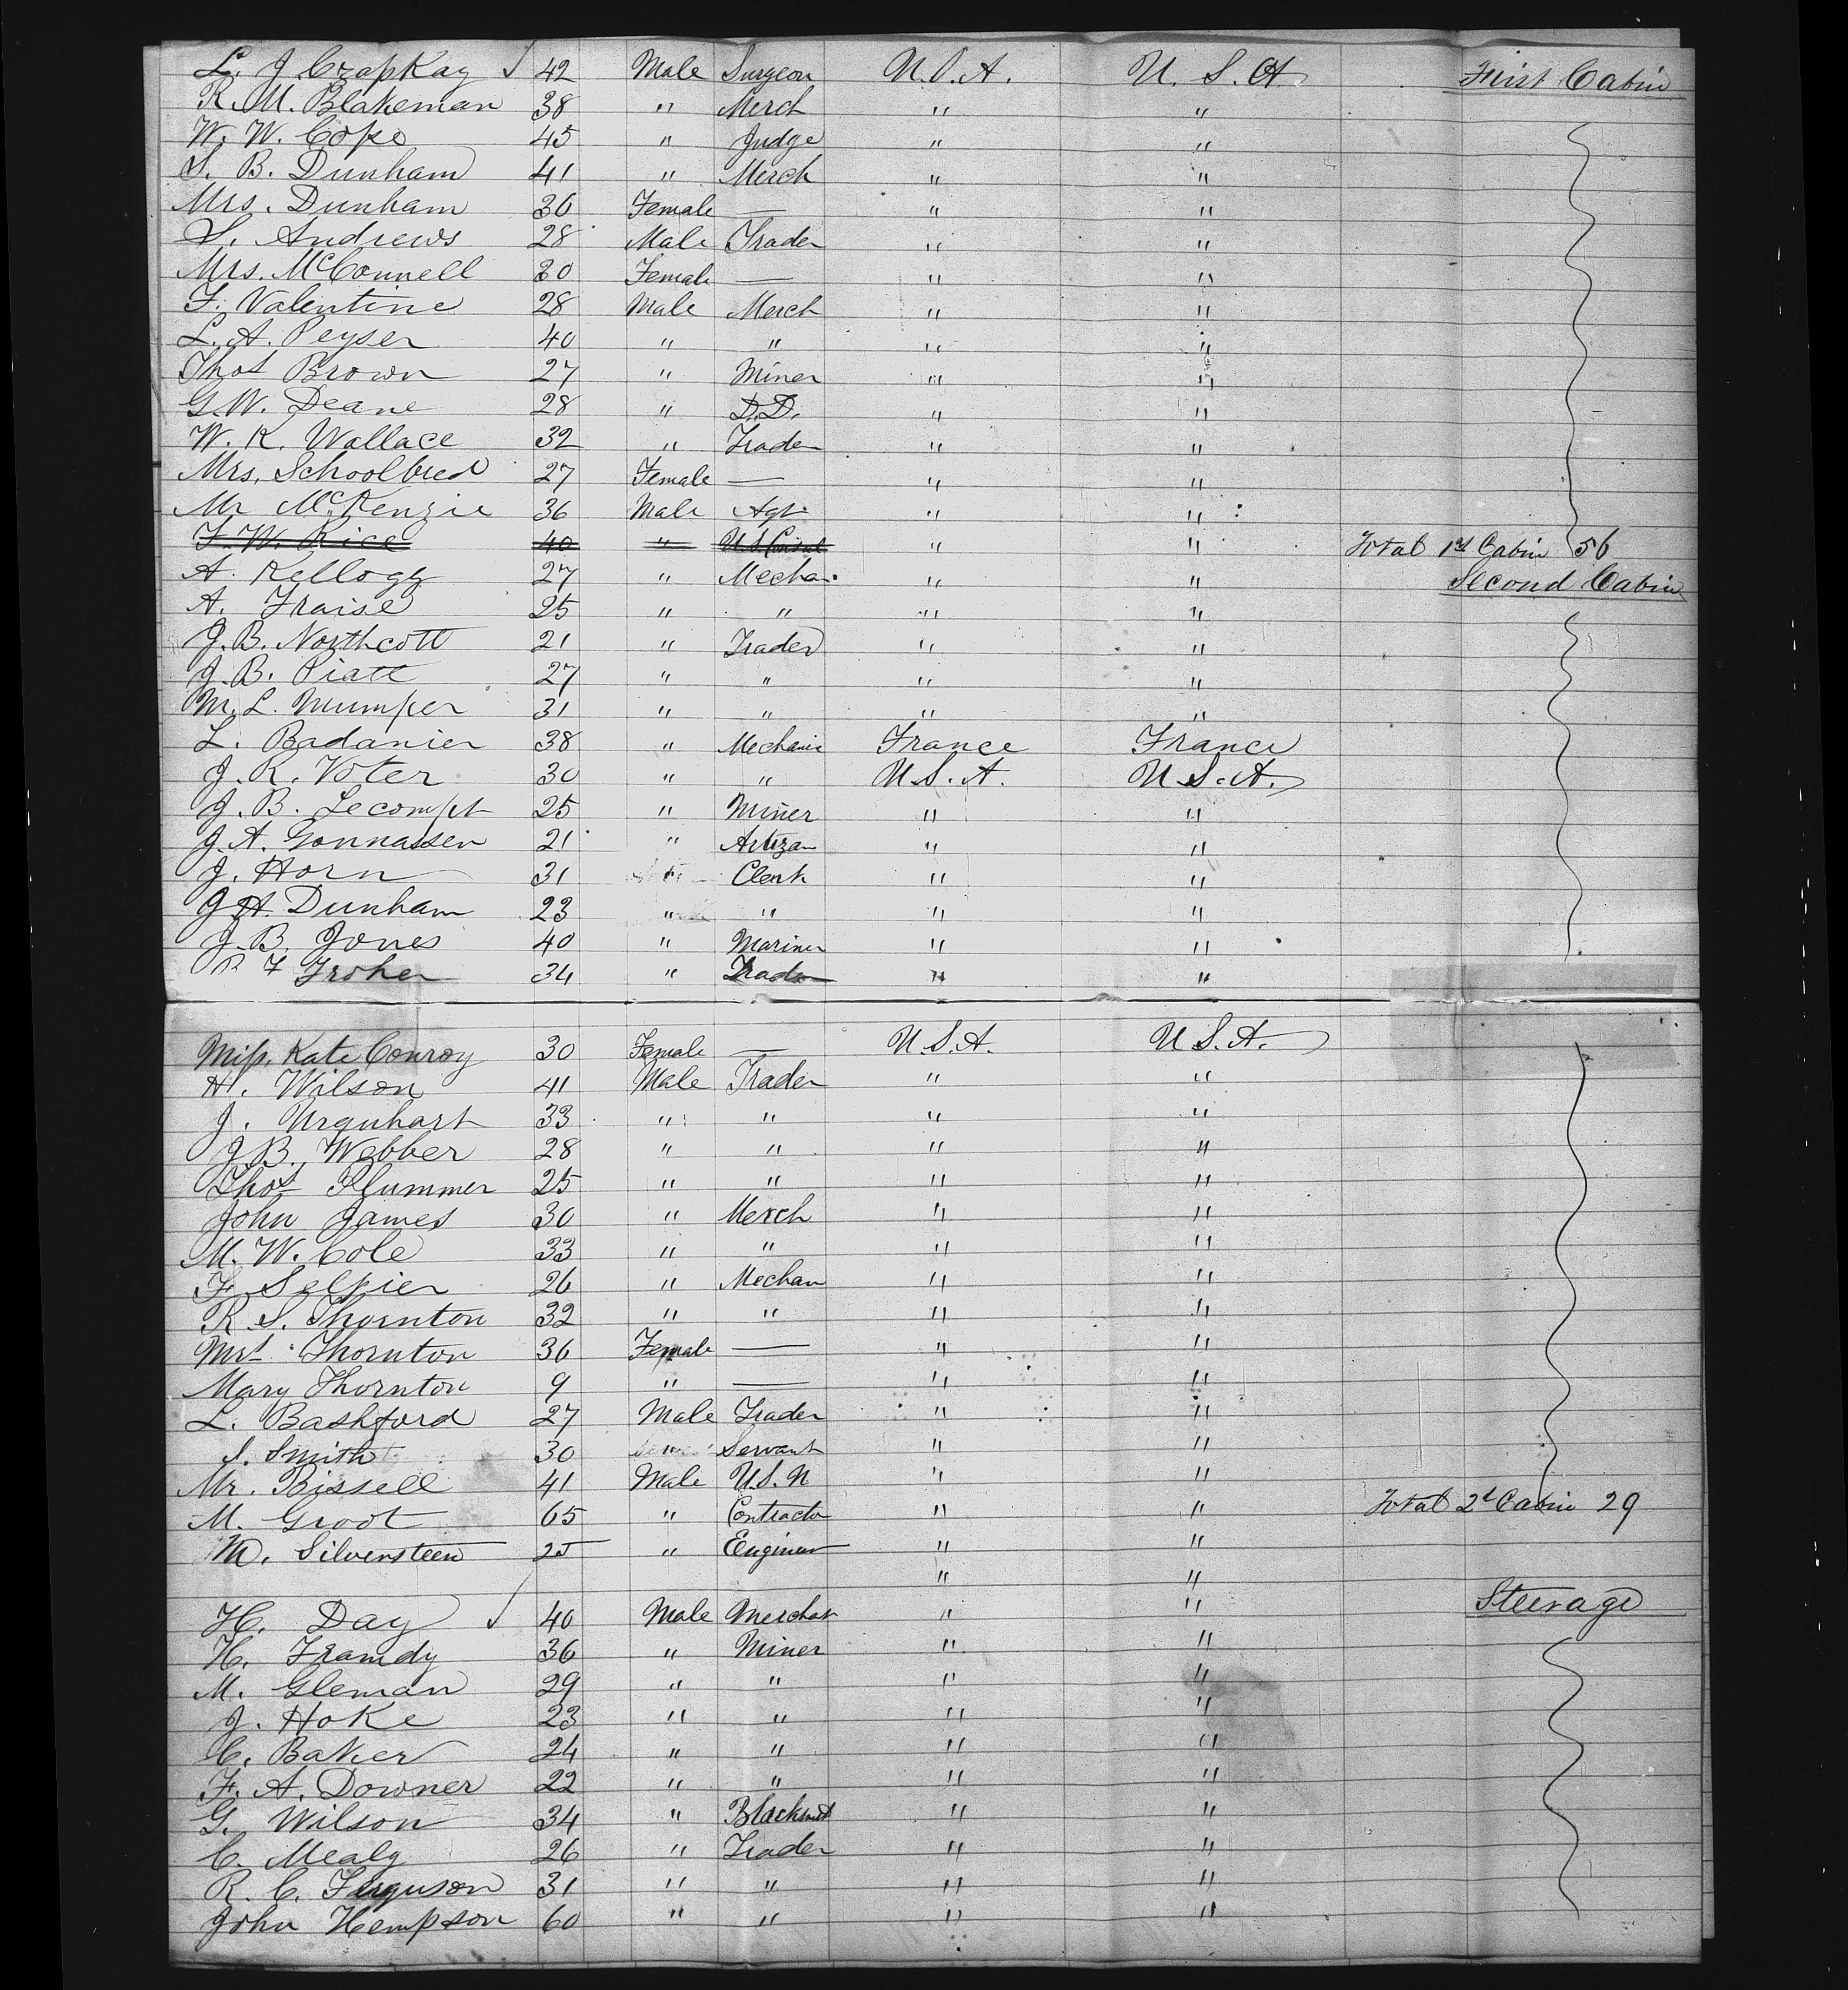 L. J Czapkay √ 42 Male Surgeon U.S.A. U.S.A. First Cabin
R. M. Blakeman 38 " Merch " "
W. W. Cope 45 " Judge " "
S. B. Dunham 41 " Merch " "
Mrs. Dunham 36 Female — " "
S. Andrews 28 Male Trader " "
Mrs. McConnell 30 Female — " "
F. Valentine 28 Male Merch " "
L. A. Peyser 40 " " " "
Thos Brown 27 " Miner " "
G. W. Deane 28 " D.D. " "
W. K. Wallace 32 " Trader " "
Mrs. Schoolbred 27 Female — " "
Mr McKenzie 36 Male Agt. " "
F. W. Rice 40 " U.S. Consul " " Total 1st Cabin 56
A. Kellogg 27 " Mechan " " Second Cabin
A. Fraise 25 " " " "
J. B. Northcott 21 " Trader " "
J. B. Piatt 27 " " " "
M. L. Mumper 31 " " " "
L. Badanier 38 " Mechanic France France
J. R. Voter 30 " " U.S.A. U.S.A.
J. B. Lecompt 25 " Miner " "
J. A. Gonnassen 21 " Artizan " "
J. Horn 31 " Clerk " "
J A Dunham 23 " " " "
J. B. Jones 40 " Mariner " "
F Froher 34 " Trader " "
Miss. Kate Conroy 30 Female — U.S.A. U.S.A.
H. Wilson 41 Male Trader " "
J. Urquhart 33 " " " "
J. B. Webber 28 " " " "
Thos Plummer 25 " " " "
John James 30 " Merch " "
M. W. Cole 33 " " " "
F. Selpier 26 " Mechan " "
R. S. Thornton 32 " " " "
Mrs Thornton 36 Female — " "
Mary Thornton 9 " — " "
L. Bashford 27 Male Trader " "
S. Smith 30 " Servant " "
Mr. Bissell 41 Male U.S.N " "
M. Groot 65 " Contractor " " Total 2d Cabin 29
M. Silversteen 25 " Engineer " "
" "
H. Day √ 40 Male Merchan " " Steerage
H. Framdy 36 " Miner " "
M. Gleman 29 " " " "
J. Hoke 23 " " " "
C. Baker 24 " " " "
F. A. Downer 22 " " " "
G. Wilson 34 " Blacksmit " "
C. Mealy 26 " Trader " "
R. C. Ferguson 31 " " " "
John Hempson 60 " " " "